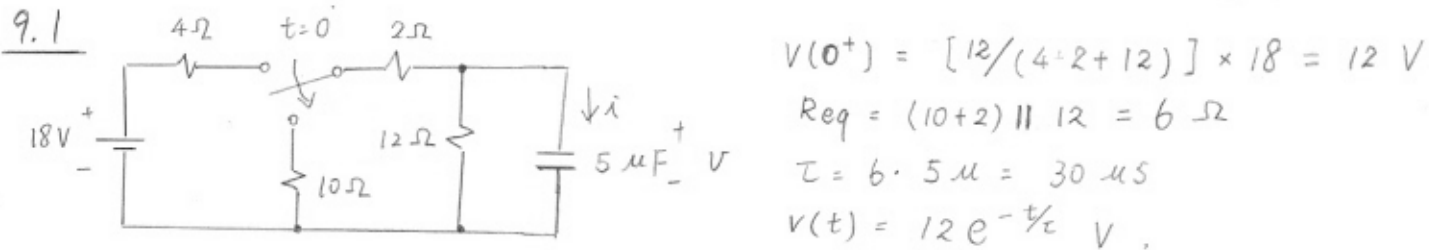 9.1
4Ω t=0 2Ω
18V + -
10Ω
12Ω
↓i
5 μF + - v
V(0⁺) = [12/(4+2+12)] × 18 = 12 V
Req = (10+2) || 12 = 6 Ω
τ = 6 · 5μ = 30 μs
v(t) = 12 e^(-t/τ) V .